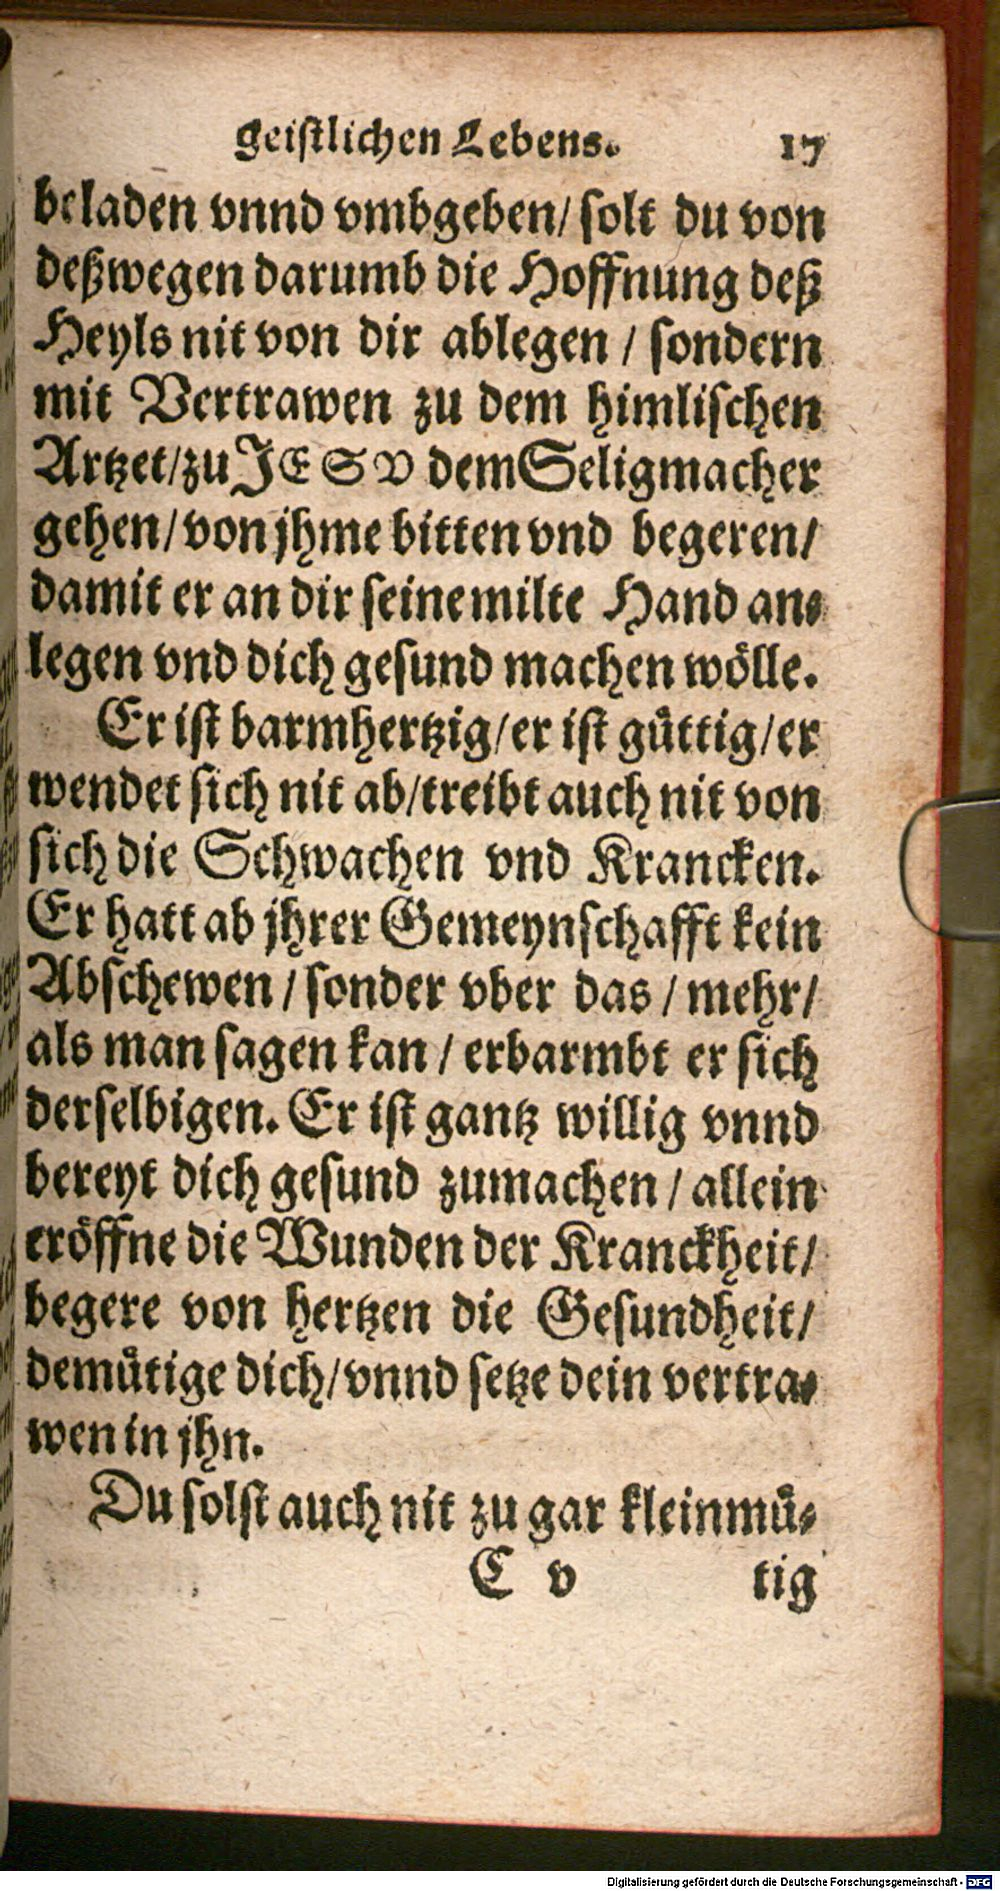 geistlichen Lebens. 17
beladen vnnd vmbgeben/ solt du von
deßwegen darumb die Hoffnung deß
Heyls nit von dir ablegen / sondern
mit Vertrawen zu dem himlischen
Artzet/zu JESV dem Seligmacher
gehen/ von jhme bitten vnd begeren/
damit er an dir seine milte Hand an⸗
legen vnd dich gesund machen wölle.
Er ist barmhertzig/er ist gůttig/er
wendet sich nit ab/treibt auch nit von
sich die Schwachen vnd Krancken.
Er hatt ab jhrer Gemeynschafft kein
Abschewen / sonder vber das / mehr/
als man sagen kan / erbarmbt er sich
derselbigen. Er ist gantz willig vnnd
bereyt dich gesund zumachen / allein
eröffne die Wunden der Kranckheit/
begere von hertzen die Gesundheit/
demůtige dich/vnnd setze dein vertra⸗
wen in jhn.
Du solst auch nit zu gar kleinmů⸗
C v tig
Digitalisierung gefördert durch die Deutsche Forschungsgemeinschaft - DFG